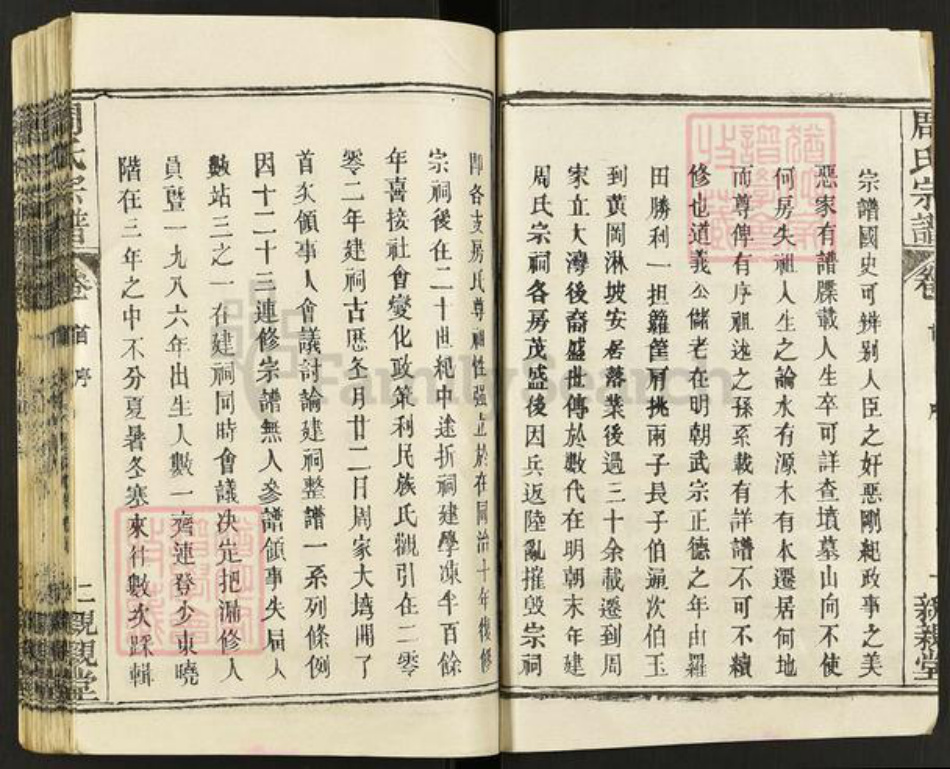 周氏宗譜 卷 首 序 一 親親堂
宗譜國史可辨别人臣之奸惡剛紀政事之美
惡家有譜牒載人生卒可詳查墳墓山向不使
何房失祖人生之論水有源木有本遷居何地
而尊俾有序祖述之孫系載有詳譜不可不續
修也道義公儲老在明朝武宗正德之年由羅
田勝利一担籮筐肩挑兩子長子伯通次伯玉
到黃岡淋坡安居落業後過三十余載遷到周
家立大灣後裔盛世傳於數代在明朝末年建
周氏宗祠各房茂盛後因兵返陸亂摧毁宗祠
即各支房氏尊祖性强立於在同治十年復修
宗祠後在二十世紀中途折祠建學凍半百餘
年喜接社會變化政策利民族氏觀引在二零
零二年建祠古历冬月廿二日周家大塆開了
首次領事人會議討論建祠整譜一系列條例
因十二十三連修宗譜無人參譜領事失屆人
數站三之一在建祠同時會議决定把漏修人
員暨一九八六年出生人數一齊連登少東曉
階在三年之中不分夏暑冬寒來往數次踩輯
周氏宗譜 卷 首 序 二 親親堂
FamilySearch